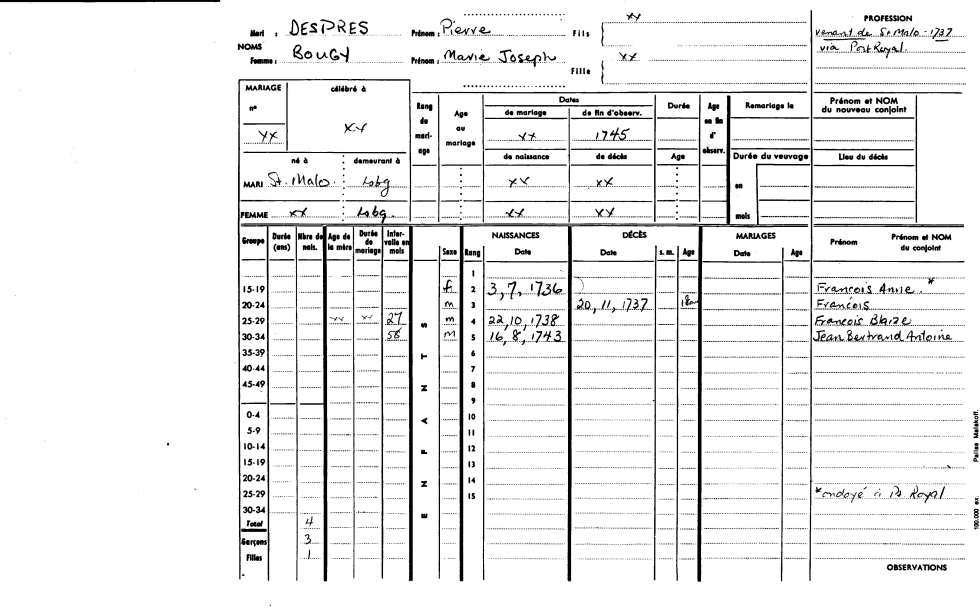 Mari : DESPRES Prénom : Pierre Fils xx PROFESSION
venant de St Malo - 1737
NOMS via Port Royal.
Femme : BOUGY Prénom : Marie Joseph Fille xx
MARIAGE célébré à Rang du mariage Age au mariage Dates Durée Age en fin d' observ. Remariage le Prénom et NOM du nouveau conjoint
n° de mariage de fin d'observ.
xx xx xx 1745
né à demeurant à de naissance de décès Age Durée du veuvage Lieu du décès
MARI St. Malo. Lobg xx xx en
FEMME xx Lobg. xx xx mois
Groupe Durée (ans) Nbre de nais. Age de la mère Durée de mariage Intervalle en mois ENFANTS Sexe Rang NAISSANCES Date DÉCÈS Date s. m. Age MARIAGES Date Age Prénom Prénom et NOM du conjoint
1
15-19 f 2 3, 7, 1736 Francois Anne. *
20-24 m 3 20, 11, 1737 Francois
25-29 xx xx 27 m 4 22, 10, 1738 Francois Blaize
30-34 58 m 5 16, 8, 1743 Jean Bertrand Antoine
35-39 6
40-44 7
45-49 8
9
0-4 10
5-9 11
10-14 12
15-19 13
20-24 14
25-29 15 * ondoyé à Pt. Royal
30-34
Total 4
Garçons 3
Filles 1
OBSERVATIONS
100.000 ex. Malakoff.